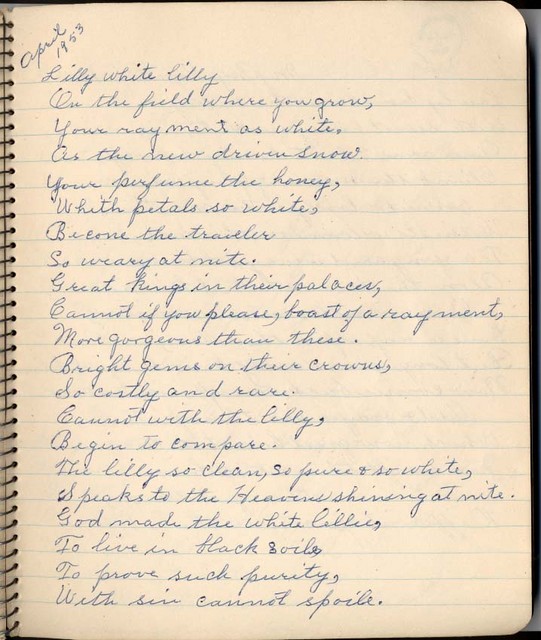 April
1953
Lilly white lilly
On the field where you grow,
Your rayment as white,
As the new driven snow.
Your perfume the honey,
Whith petals so white,
Becone the traveler
So weary at nite.
Great kings in their palaces,
Cannot if you please, boast of a rayment,
More gorgeous than these.
Bright gems on their crowns,
So costly and rare.
Cannot with the lilly,
Begin to compare.
The lilly so clean, so pure & so white,
Speaks to the Heavens shining at nite.
God made the white lillie,
To live in black soile,
To prove such purity,
With sin cannot spoile.